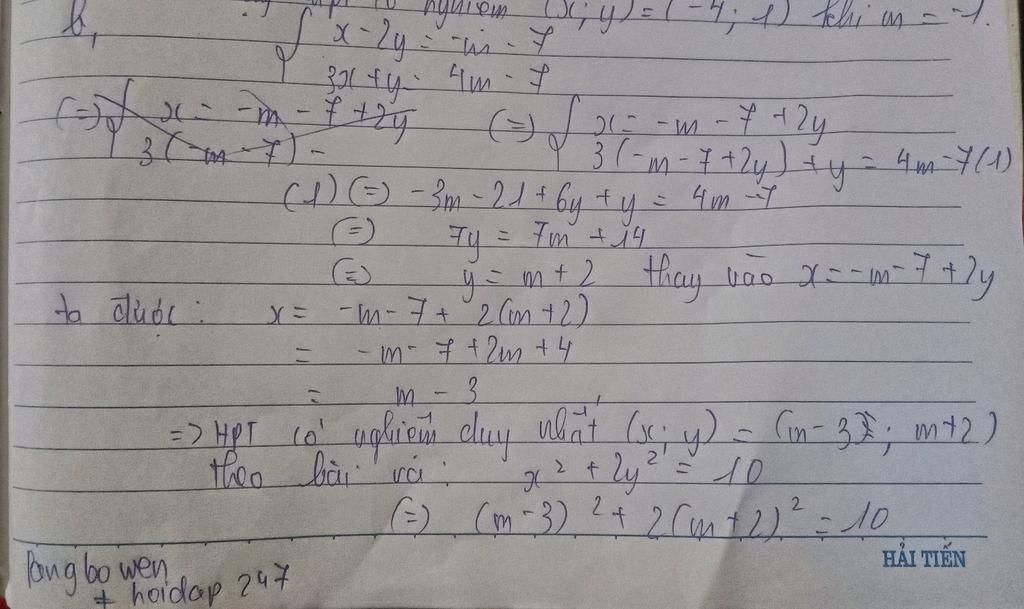 HPT có nghiệm (x; y) = (-4; 1) khi m = -1.
b, { x - 2y = -m - 7
3x + y = 4m - 7
(=) { x = -m - 7 + 2y (=) { x = -m - 7 + 2y
3(-m - 7) - 3(-m - 7 + 2y) + y = 4m - 7 (1)
(1) (=) -3m - 21 + 6y + y = 4m - 7
(=) 7y = 7m + 14
(=) y = m + 2 thay vào x = -m - 7 + 2y
ta được: x = -m - 7 + 2(m + 2)
= -m - 7 + 2m + 4
= m - 3
=> HPT có nghiệm duy nhất (x; y) = (m - 3; m + 2)
theo bài ra: x² + 2y² = 10
(=) (m - 3)² + 2(m + 2)² = 10
HẢI TIẾN
Pongbowen
+ hoidap 247